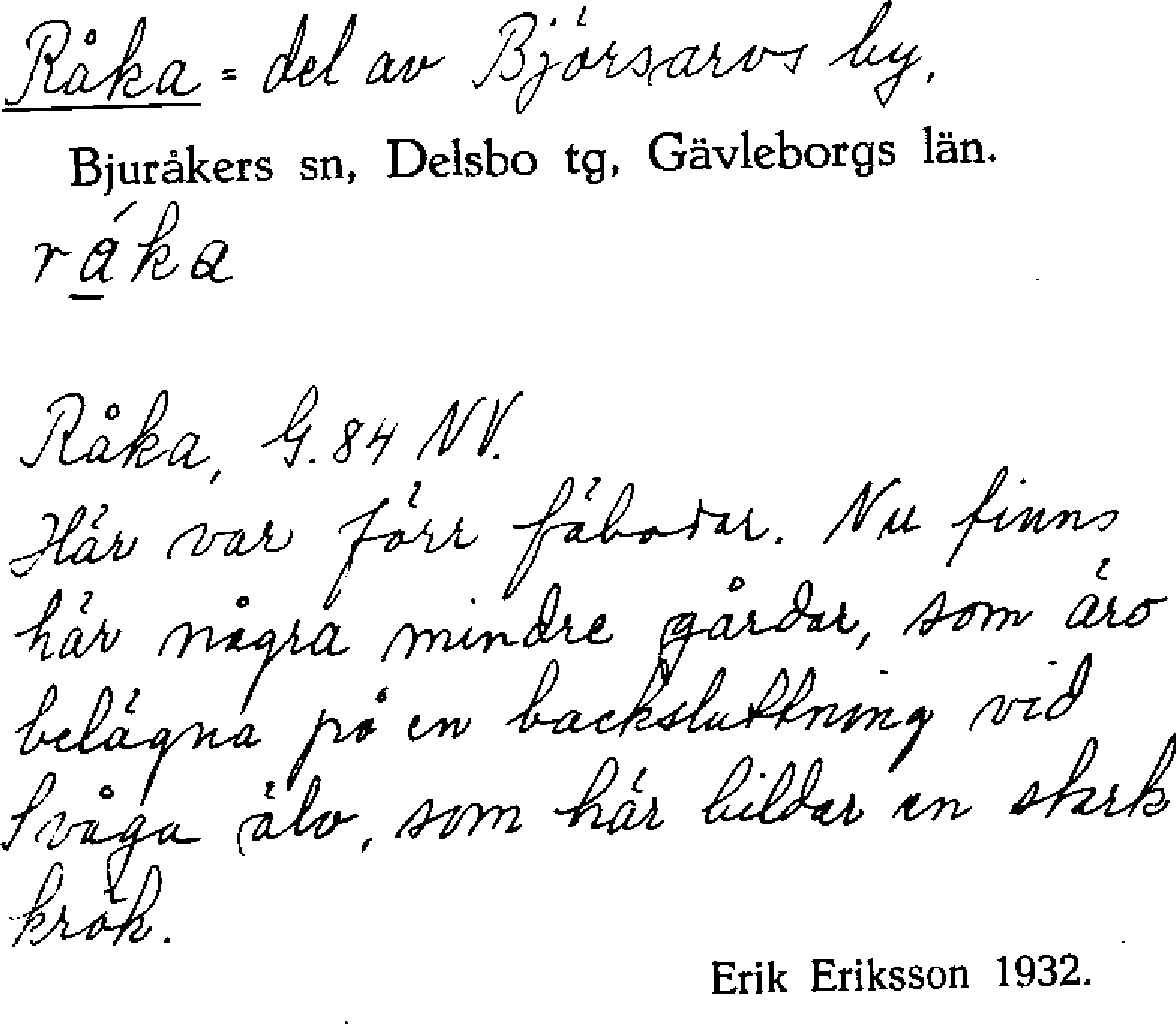 Råka = del av Björsarvs by.
Bjuråkers sn, Delsbo tg, Gävleborgs län.
rá̱ka
Råka, G. 84 NV.
Här var förr fäbodar. Nu finns
här några mindre gårdar, som äro
belägna på en backsluttning vid
Svåga älv, som här bildar en stark
krök.
Erik Eriksson 1932.